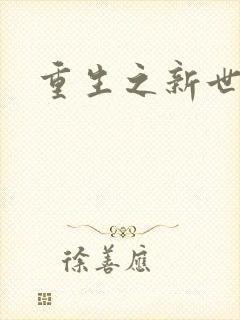 重生之新世
徐善应